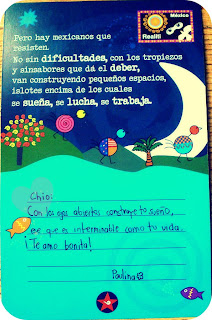 Pero hay mexicanos que
resisten.
No sin dificultades, con los tropiezos
y sinsabores que dá el deber,
van construyendo pequeños espacios,
islotes encima de los cuales
se sueña, se lucha, se trabaja.
México
Realiti
Chio:
Con los ojos abiertos construye tu sueño,
ese que es interminable como tu vida.
¡Te amo bonita!
Paulina